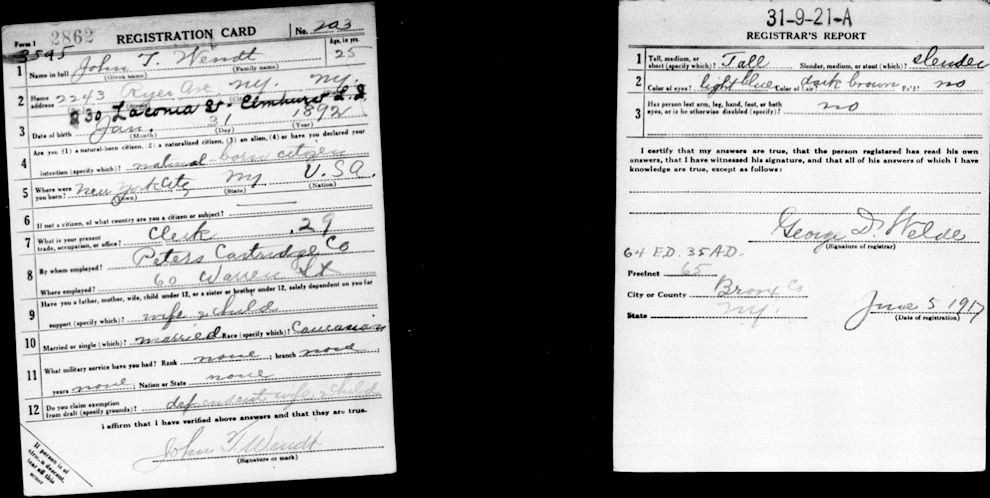 Form 1 2862 REGISTRATION CARD No. 203
3595
1 Name in full John T. Wendt Age, in yrs. 25
(Given name) (Family name)
2 Home address 2243 Ryer Ave. N.Y. N.Y.
230 Laconia St. Elmhurst L.I.
3 Date of birth Jan. 31 1892
(Month) (Day) (Year)
4 Are you (1) a natural-born citizen, (2) a naturalized citizen, (3) an alien, (4) or have you declared your
intention (specify which)? natural born citizen
5 Where were you born? New York City NY U.S.A.
(Town) (State) (Nation)
6 If not a citizen, of what country are you a citizen or subject?
7 What is your present trade, occupation, or office? Clerk 29
8 By whom employed? Peters Cartridge Co
Where employed? 60 Warren St
9 Have you a father, mother, wife, child under 12, or a sister or brother under 12, solely dependent on you for
support (specify which)? wife & child
10 Married or single (which)? married Race (specify which)? Caucasian
11 What military service have you had? Rank none ; branch none ;
years none ; Nation or State none
12 Do you claim exemption from draft (specify grounds)? dependent wife & child
I affirm that I have verified above answers and that they are true.
John T Wendt
(Signature or mark)
If person is of
African descent,
tear off this
corner
31-9-21-A
REGISTRAR'S REPORT
1 Tall, medium, or short (specify which)? Tall Slender, medium, or stout (which)? slender
2 Color of eyes? light blue Color of hair? dark brown Bald? no
3 Has person lost arm, leg, hand, foot, or both
eyes, or is he otherwise disabled (specify)? no
I certify that my answers are true, that the person registered has read his own
answers, that I have witnessed his signature, and that all of his answers of which I have
knowledge are true, except as follows:
George D. Welde
(Signature of registrar)
64 E.D. 35 A.D.
Precinct 65
City or County Bronx Co
State N.Y. June 5 1917
(Date of registration)